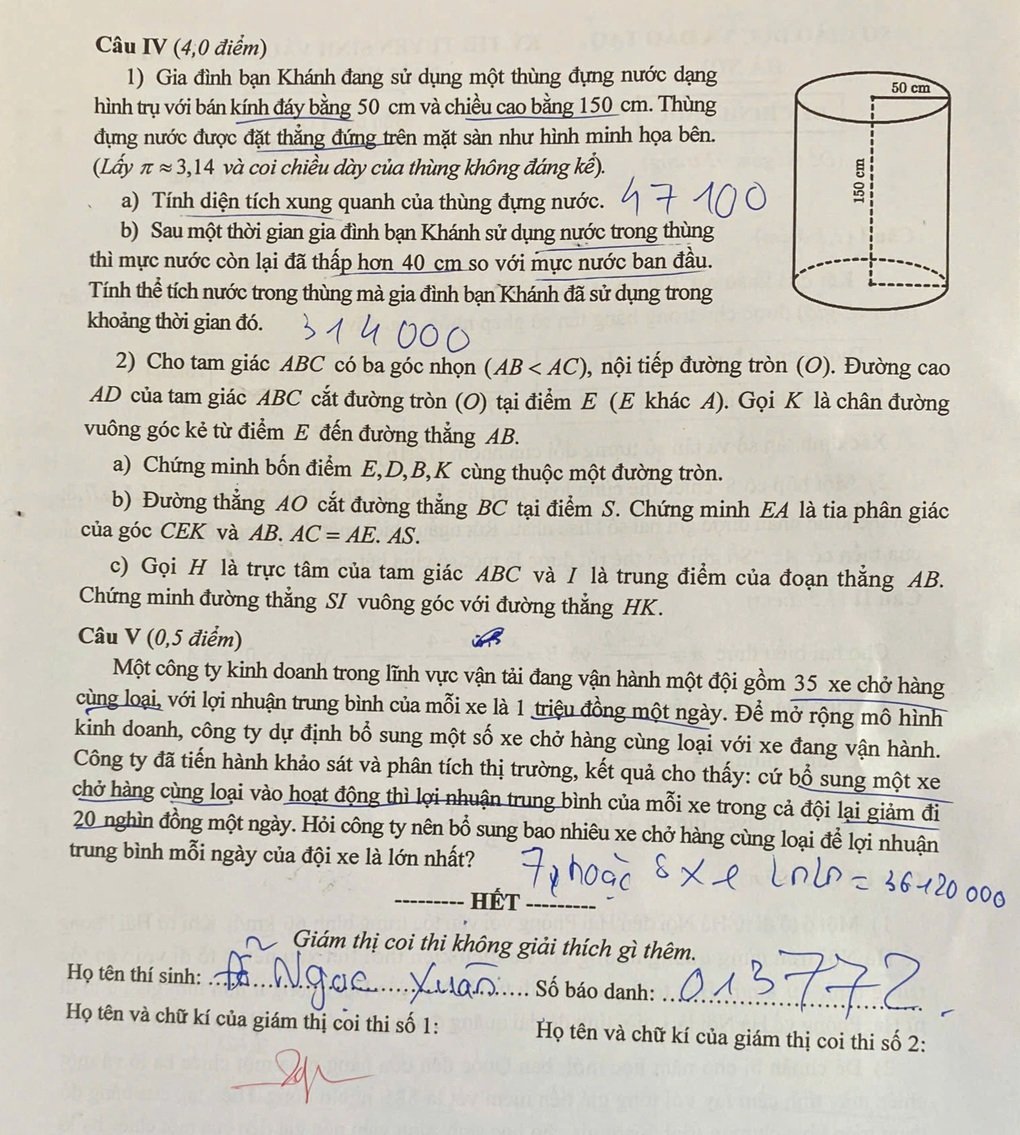 Câu IV (4,0 điểm)
1) Gia đình bạn Khánh đang sử dụng một thùng đựng nước dạng
hình trụ với bán kính đáy bằng 50 cm và chiều cao bằng 150 cm. Thùng
đựng nước được đặt thẳng đứng trên mặt sàn như hình minh họa bên.
(Lấy π ≈ 3,14 và coi chiều dày của thùng không đáng kể).
50 cm
150 cm
a) Tính diện tích xung quanh của thùng đựng nước. 47100
b) Sau một thời gian gia đình bạn Khánh sử dụng nước trong thùng
thì mực nước còn lại đã thấp hơn 40 cm so với mực nước ban đầu.
Tính thể tích nước trong thùng mà gia đình bạn Khánh đã sử dụng trong
khoảng thời gian đó. 314000
2) Cho tam giác ABC có ba góc nhọn (AB < AC), nội tiếp đường tròn (O). Đường cao
AD của tam giác ABC cắt đường tròn (O) tại điểm E (E khác A). Gọi K là chân đường
vuông góc kẻ từ điểm E đến đường thẳng AB.
a) Chứng minh bốn điểm E, D, B, K cùng thuộc một đường tròn.
b) Đường thẳng AO cắt đường thẳng BC tại điểm S. Chứng minh EA là tia phân giác
của góc CEK và AB. AC = AE. AS.
c) Gọi H là trực tâm của tam giác ABC và I là trung điểm của đoạn thẳng AB.
Chứng minh đường thẳng SI vuông góc với đường thẳng HK.
Câu V (0,5 điểm)
Một công ty kinh doanh trong lĩnh vực vận tải đang vận hành một đội gồm 35 xe chở hàng
cùng loại, với lợi nhuận trung bình của mỗi xe là 1 triệu đồng một ngày. Để mở rộng mô hình
kinh doanh, công ty dự định bổ sung một số xe chở hàng cùng loại với xe đang vận hành.
Công ty đã tiến hành khảo sát và phân tích thị trường, kết quả cho thấy: cứ bổ sung một xe
chở hàng cùng loại vào hoạt động thì lợi nhuận trung bình của mỗi xe trong cả đội lại giảm đi
20 nghìn đồng một ngày. Hỏi công ty nên bổ sung bao nhiêu xe chở hàng cùng loại để lợi nhuận
trung bình mỗi ngày của đội xe là lớn nhất?
7 hoặc 8 xe lnln = 36120 000
--------- HẾT ---------
Giám thị coi thi không giải thích gì thêm.
Họ tên thí sinh: Đỗ Ngọc Xuân Số báo danh: 013772
Họ tên và chữ kí của giám thị coi thi số 1: Họ tên và chữ kí của giám thị coi thi số 2: